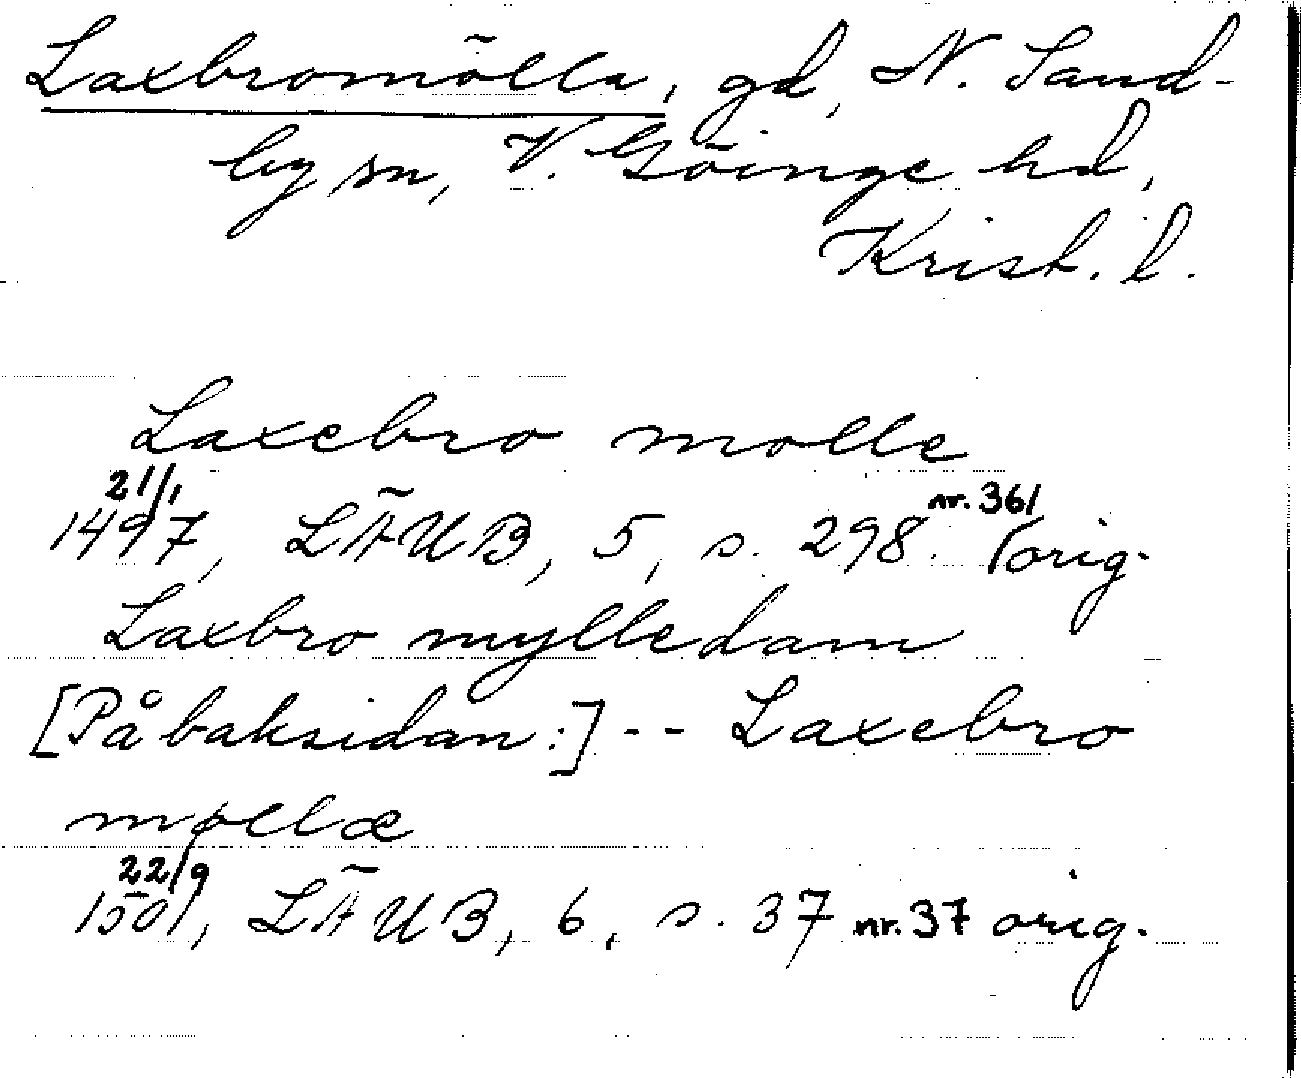 Laxbromölla, gd, N. Sand-
by sn, V. Göinge hd,
Krist. l.
Laxebro molle
21/1 nr. 361
1497, LÄUB, 5, s. 298. (orig.
Laxbro mylledam
[På baksidan:] -- Laxebro
møllæ
22/9
1501, LÄUB, 6, s. 37 nr. 37 orig.